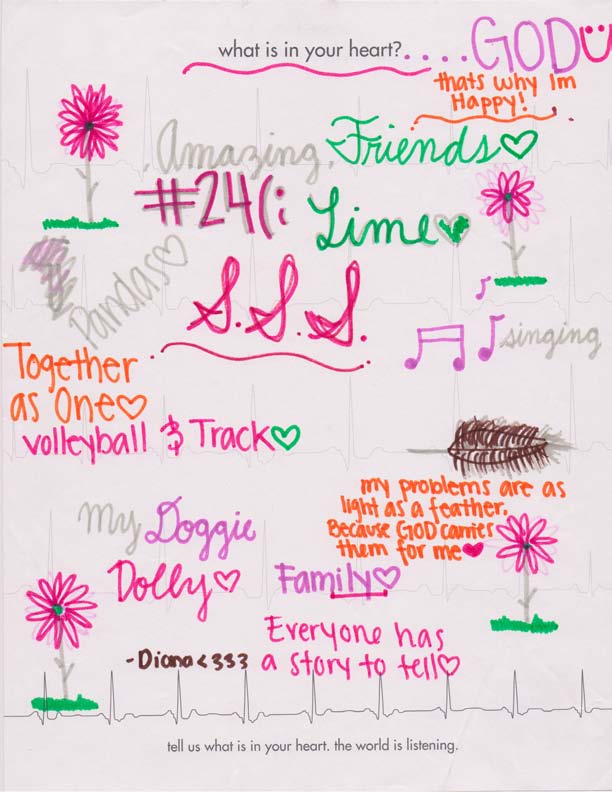 what is in your heart?....GOD
thats why Im
Happy!
Amazing Friends
#24(:
Lime
Pandas
S.S.S.
singing
Together
as One
volleyball & Track
my problems are as
light as a feather.
Because GOD carries
them for me
My Doggie
Dolly
Family
Everyone has
a story to tell
-Diana<333
tell us what is in your heart. the world is listening.